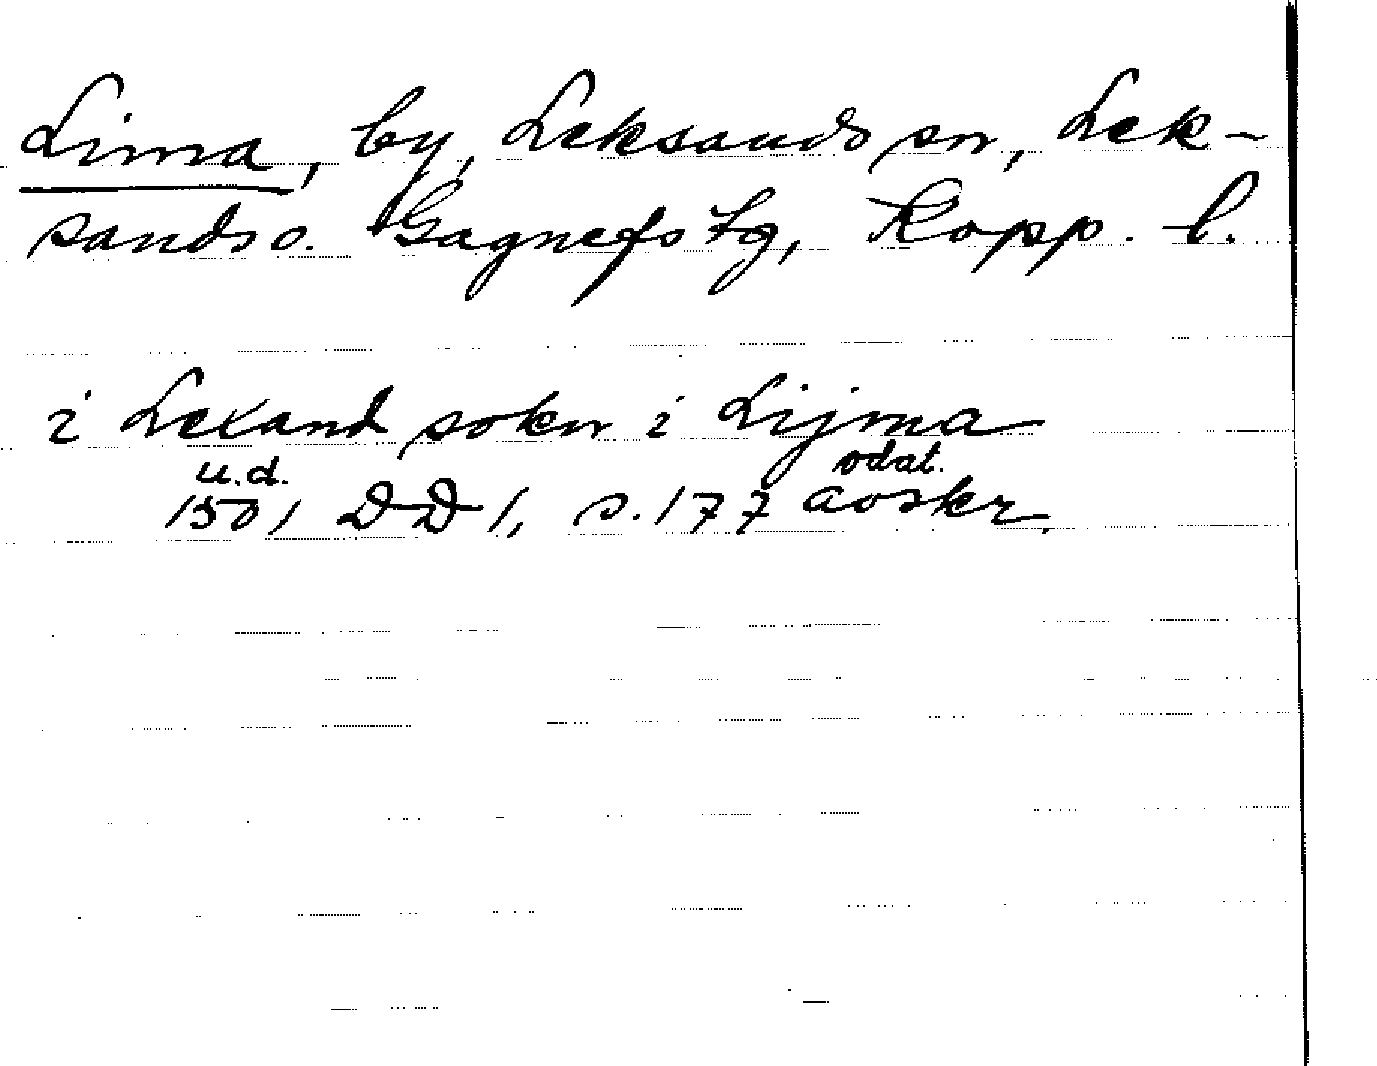 Lima, by, Leksands sn, Lek-
sands o. Gagnefs tg, Kopp. l.
i Lexand sokn i Lijma
u.d. odat.
1501 DD 1, s. 177 avskr.